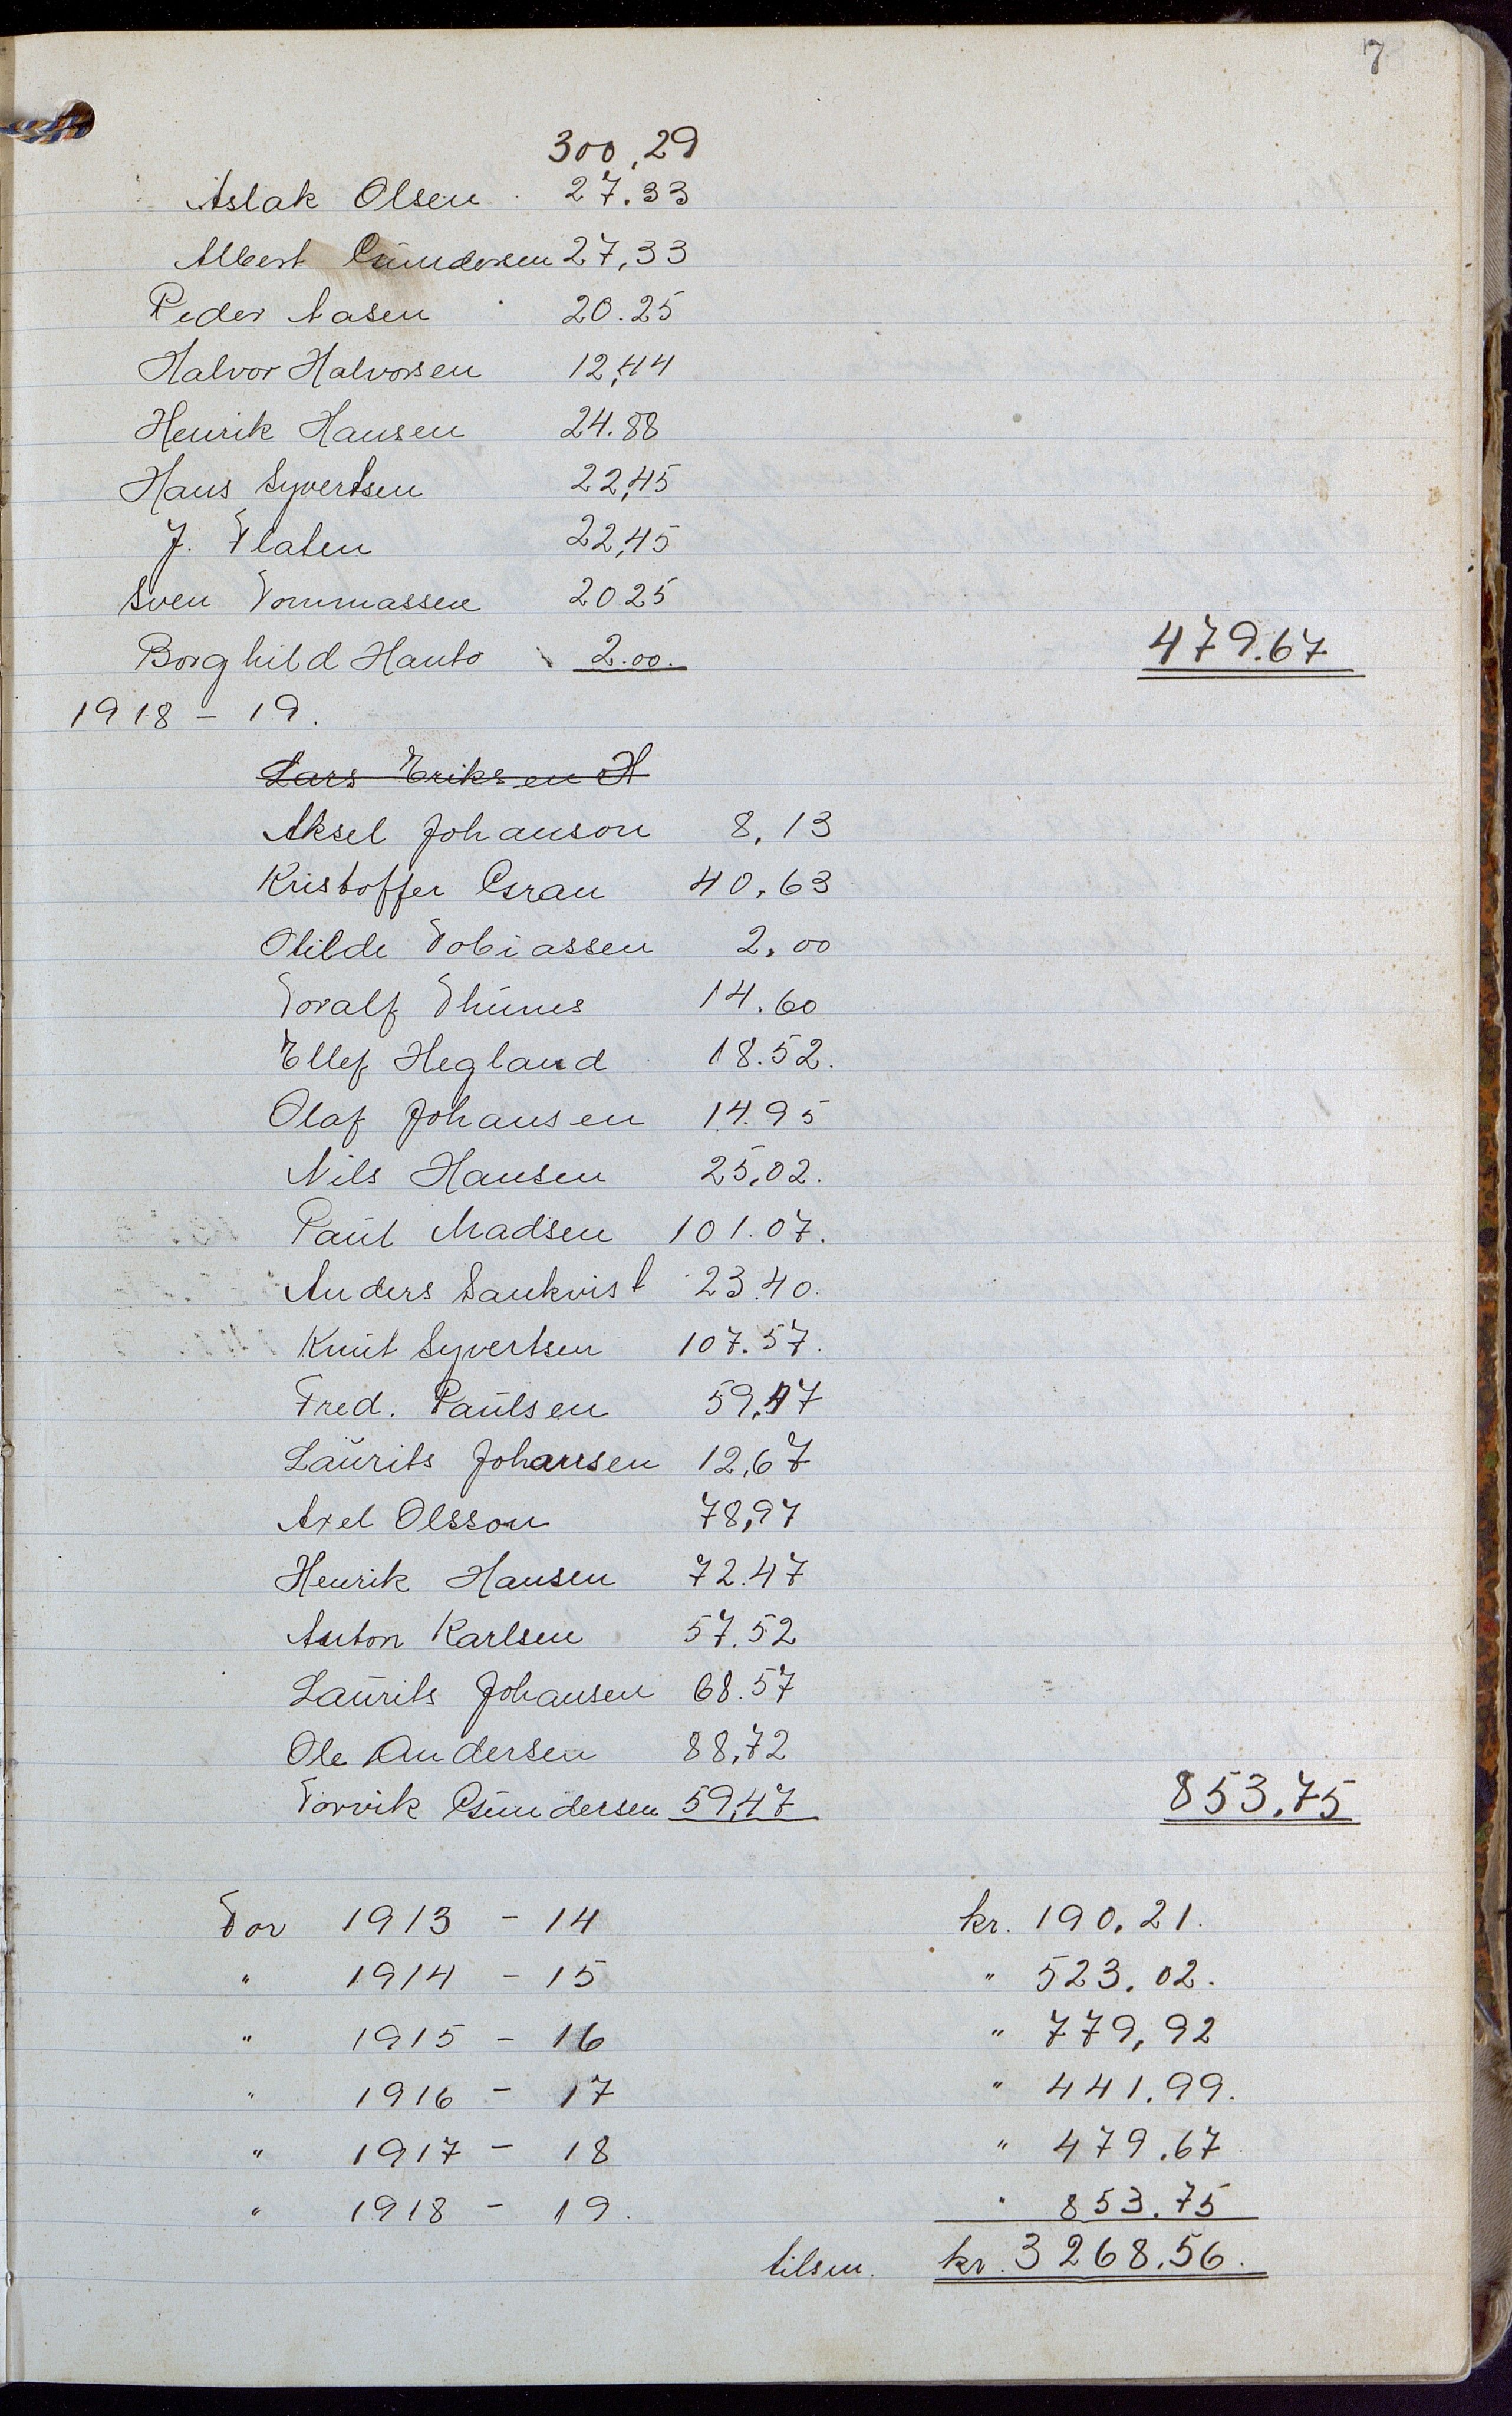 7
300,29
Aslak Olsen 27.33
Albert Gundersen 27,33
Peder Aasen 20.25
Halvor Halvorsen 12,44
Henrik Hansen 24.88
Hans Syvertsen 22,45
J. Flaten 22,45
Sven Tommassen 20.25
Borghild Hanto 2.00. 479.67
1918 - 19.
Lars Eriksen H
Aksel Johanson 8,13
Kristoffer Gran 40,63
Otilde Tobiassen 2,00
Toralf Thunes 14.60
Ellef Hegland 18.52.
Olaf Johansen 14.95
Nils Hansen 25,02.
Paul Madsen 101.07.
Anders Sankvist 23.40.
Knut Syvertsen 107.57.
Fred. Paulsen 59,47
Laurits Johansen 12,67
Axel Olsson 78,97
Henrik Hansen 72.47
Anton Karlsen 57.52
Laurits Johansen 68.57
Ole Andersen 88,72
Torvik Gundersen 59,47 853,75
For 1913 - 14 kr. 190,21.
" 1914 - 15 " 523,02.
" 1915 - 16 " 779,92
" 1916 - 17 " 441,99.
" 1917 - 18 " 479.67
" 1918 - 19. " 853.75
tilsm. kr. 3268.56.